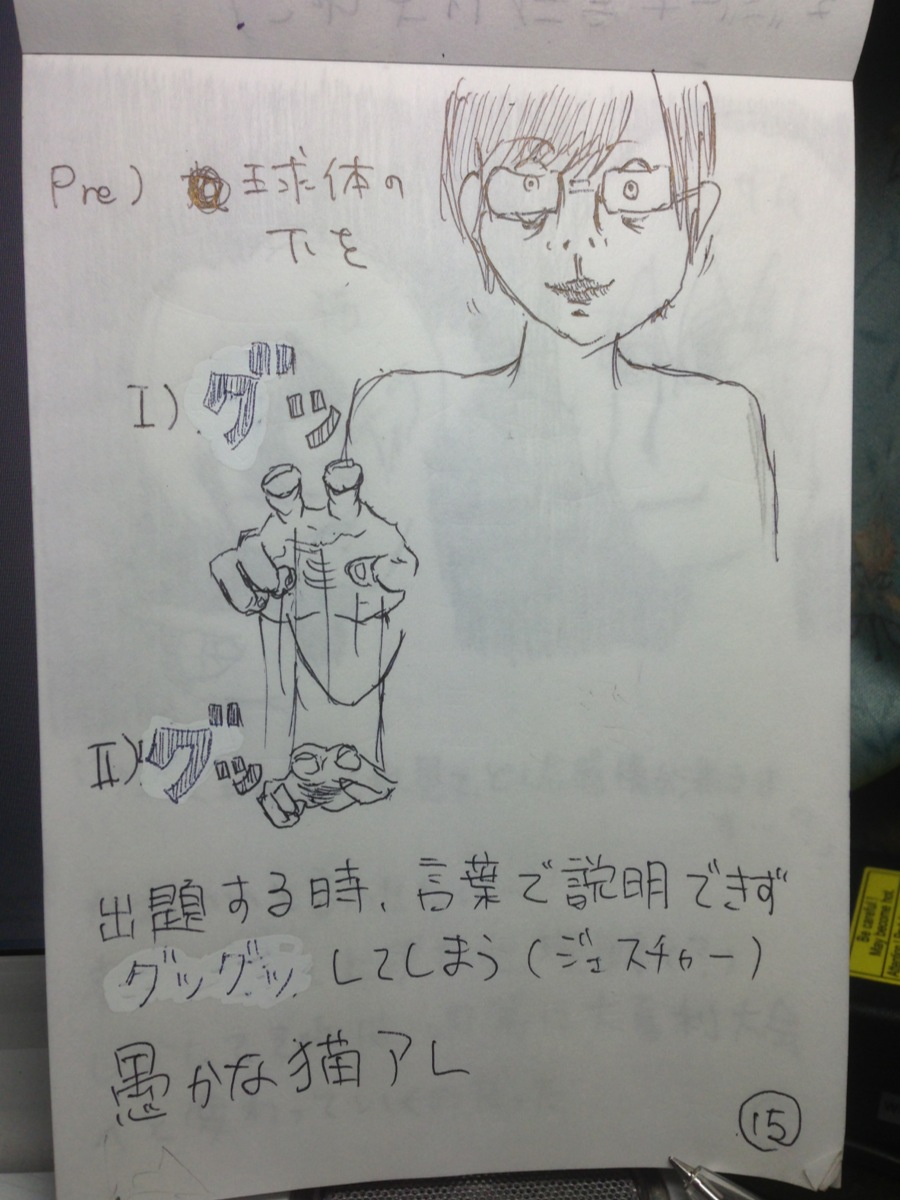 Pre) 球体の
下を
I) グッ
II) グッ
出題する時、言葉で説明できず
グッグッしてしまう(ジェスチャー)
愚かな猫アレ
15
Be careful!
May become hot.